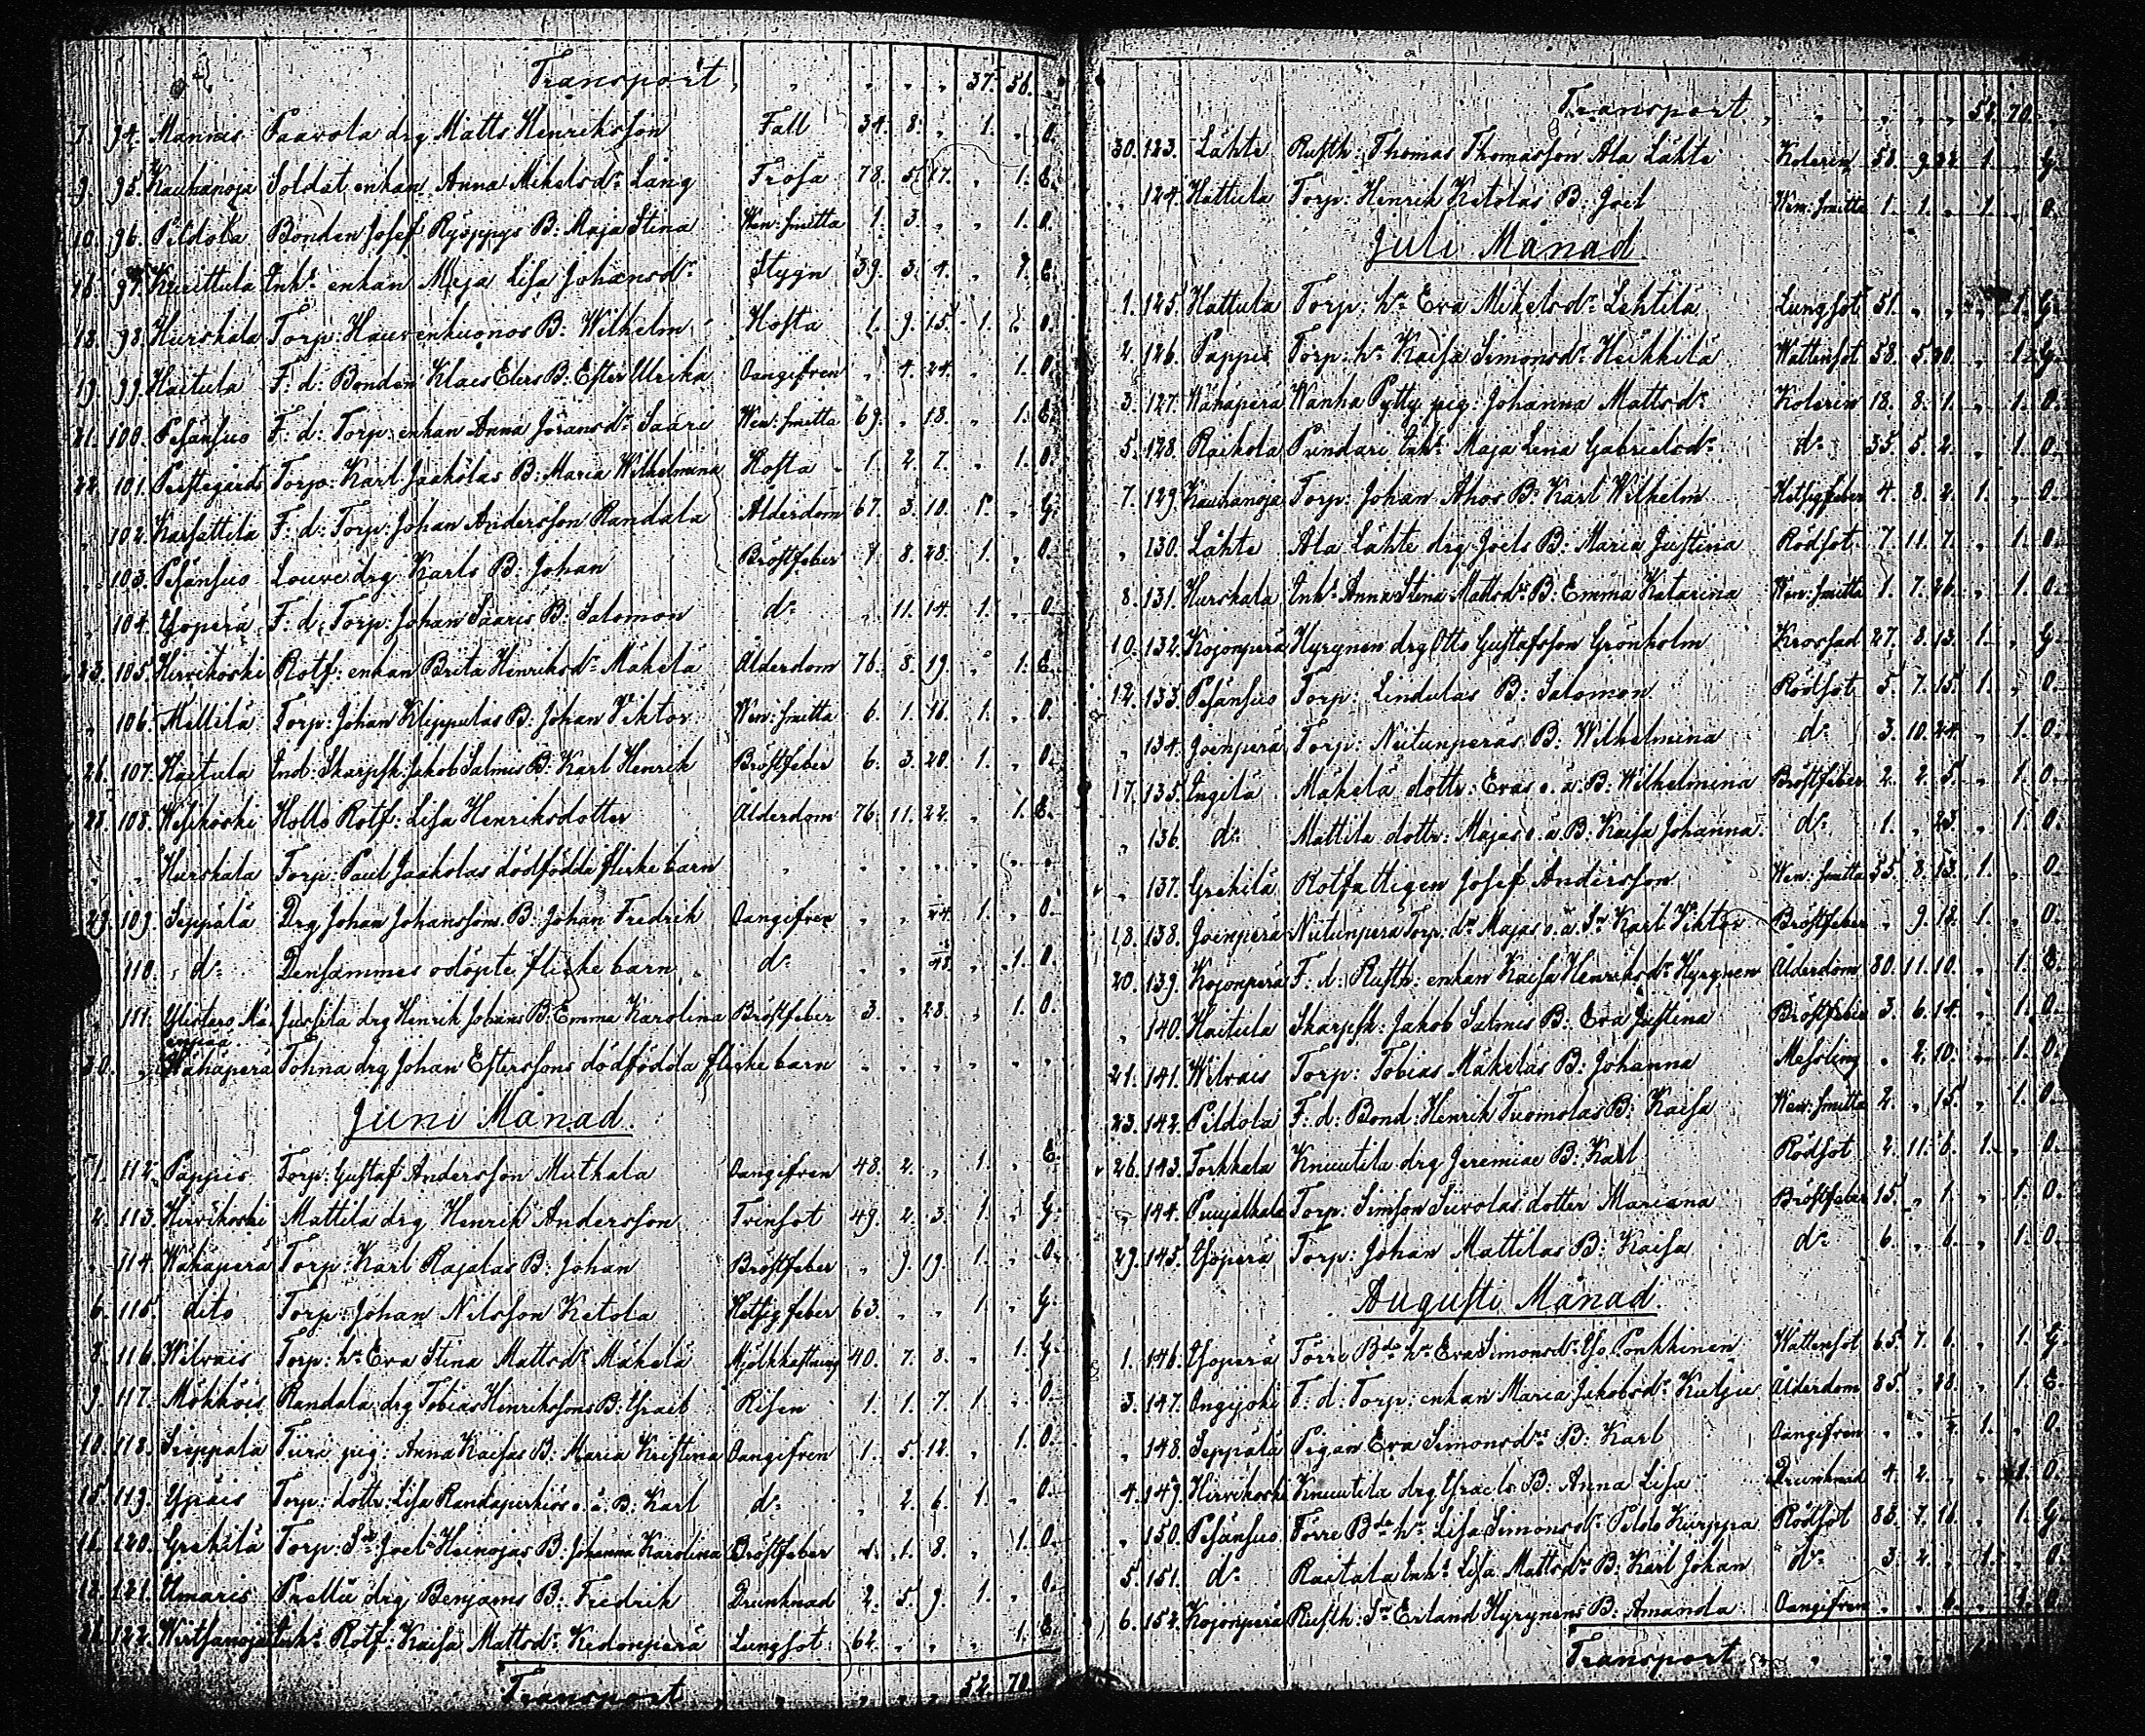 Transport, " " " " 37. 56.
7. 94. Mannis Paavola drg Matts Henriksson Fall 34. 8. " 1. " O.
9. 95. Kauhanoja Soldat enkan Anna Mikelsdr Lång Frosa 78. 5. 17. " 1. E.
10. 96. Peldola Bonden Josef Ryöppys B: Maja Stina Wen: smitta 1. 3. " " 1. O.
16. 97. Kurittula Inhs enkan Maja Lisa Johansdr Stygn 39. 3. 4. " 1. E.
18. 98. Hurskala Torp: B: Wilhelm Hosta 1. 9. 15. 1. " O.
19. 99. Haitula F. d: Bonden Klaes Elers B: Ester Ulrika Oangifven " 4. 24. " 1. O.
21. 100. Pesänsuo F. d: Torp: enkan Anna Göransdr Saari Wen: smitta 69. " 18. " 1. E.
22. 101. Prestegårds Torp: Karl Jaakolas B: Maria Wilhelmina Hosta 1. 2. 7. " 1. O.
" 102. Karsattila F. d: Torp: Johan Andersson Randala Ålderdom 67. 3. 10. 1. " G.
" 103. Pesänsuo Louve drg Karls B: Johan Bröstfeber 1. 8. 28. 1. " O.
" 104. Yöperä F. d: Torp: Johan Saaris B: Salomon do " 11. 14. 1. " O.
23. 105. Hirvikoski Rotf: enkan Brita Henriksdr Mäkelä Ålderdom 76. 8. 19. " 1. E.
" 106. Mellilä Torp: Johan Klippulas B: Johan Viktor Wen: smitta 6. 1. 16. 1. " O.
26. 107. Haitula Inh: Skarpsk: Jakob Salmis B: Karl Henrik Bröstfeber 6. 3. 20. 1. " O.
28. 108. Wesikoski Hollo Rotf: Lisa Henriksdotter Ålderdom 76. 11. 22. " 1. E.
" " Hurskala Torp: Paul Jaakolas dödfödda flicke barn " " " " " "
29. 109. Seppälä Drg Johan Johanssons B: Johan Fredrik Oangifven " " 1. " O.
" 110. do Densammes odöpte flicke barn do " " " 1. O.
" 111. Ylistaro Jussila drg Henrik Johans B: Emma Karolina Bröstfeber 3. " 28. " 1. O.
30. " Wähäperä Tohna drg Johan Esterssons dödfödda flicke barn " " " " "
Juni Månad.
1. 112. Pappis Torp: Gustaf Andersson Muthala Oangifven 48. 2. " 1. " E.
2. 113. Hirvikoski Mattila drg Henrik Andersson Tvinsot 49. 2. 3. 1. " G.
" 114. Wähäperä Torp: Karl Rajalas B: Johan Bröstfeber " 9. 19. 1. " O.
6. 115. dito Torp: Johan Nilsson Ketola Hetsig feber 63. " " 1. " G.
8. 116. Wilvais Torp: hr Eva Stina Mattsdr Mäkelä 40. 7. 8. " 1. G.
9. 117. Mökköis Randala drg Tobias Henrikssons B: Israel Risen 1. 1. 7. 1. " O.
10. 118. Seppälä Tiiri pig: Anna Kaisas B: Maria Kristina Oangifven 1. 5. 12. " 1. O.
15. 119. Ypäis Torp: dottr: Lisa o. ä. B: Karl do " 2. 6. 1. " O.
16. 120. Grekilä Torp: Sn Joel Heinojas B: Johanna Karolina Bröstfeber 4. 1. 8. " 1. O.
18. 121. Umaris Prellu drg Benjams B: Fredrik Drunknad 2. 5. 9. 1. " O.
21. 122. Wirtsanoja Inhs Rotf: Kaisa Mattsdr Kedonperä Lungsot 62. " " " 1. E.
Transport " " " " " 52. 70.
Transport, " " " " 52. 70. "
30. 123. Lähte Rusth: Thomas Thomasson Ala Lähte Kolerin 58. 9. 22. 1. " G.
" 124. Hattula Torp: Henrik Ketolas B: Joel Wen: smitta 1. 1. " 1. " O.
Juli Månad.
1. 125. Hattula Torp: hr Eva Mikelsdr Lehtilä Lungsot 51. " " " 1. G.
2. 126. Pappis Torp: hr Kaisa Simonsdr Heikkilä Wattensot 58. 5. 20. " 1. G.
3. 127. Wähäperä Wanha Pytty pig: Johanna Mattsdr Kolerin 18. 8. 1. " 1. O.
5. 128. Raikola Pundari Inhs Maja Lena Gabrielsdr do 35. 5. 2. " 1. O.
7. 129. Kauhanoja Torp: Johan Ahos B: Karl Wilhelm Hetsigfeber 4. 8. 2. 1. " O.
" 130. Lähte Ala Lähte drg Joels B: Maria Justina Rödsot 7. 11. 7. " 1. O.
8. 131. Hurskala Inhs Anna Stina Mattsdrs B: Emma Katarina Wen: smitta 1. 7. 26. " 1. O.
10. 132. Kojonperä Hyrynen drg Otto Gustafsson Grönholm Krossad 27. 8. 13. 1. " G.
12. 133. Pesänsuo Torp: Lindulas B: Salomon Rödsot 5. 7. 15. 1. " O.
" 134. Joenperä Torp: Niitunperäs B: Wilhelmina do 3. 10. 24. " 1. O.
17. 135. Ingilä Mäkelä dottr: Evas o. ä. B: Wilhelmina Bröstfeber 2. 2. 5. " 1. O.
" 136. do Mattila dottr: Majas o. ä. B: Kaisa Johanna do 1. " 23. " 1. O.
" 137. Grekilä Rotfattigen Josef Andersson Wen: smitta 55. 8. 13. 1. " O.
18. 138. Joenperä Niitunperä Torp: dr Majas o. ä. Sn Karl Viktor Bröstfeber " 9. 18. 1. " O.
20. 139. Kojonperä F. d: Rusth: enkan Kaisa Henriksdr Hyrynen Ålderdom 80. 11. 10. " 1. E.
" 140. Haitula Skarpsk: Jakob Salmis B: Eva Justina Bröstfeber 3. 6. 14. " 1. O.
21. 141. Wilvais Torp: Tobias Mäkeläs B: Johanna Messling " 2. 10. " 1. O.
23. 142. Peldola F. d: Bond: Henrik Tuomolas B: Kaisa Wen: smitta 2. " 15. " 1. O.
26. 143. Torkkala Knuutila drg Jeremiae B: Karl Rödsot 2. 11. 6. 1. " O.
" 144. Puujalkala Torp: Simson Siivolas dotter Mariana Bröstfeber 15. " 1. " 1. O.
29. 145. Yöperä Torp: Johan Mattilas B: Kaisa do 6. " 6. " 1. O.
Augusti Månad.
1. 146. Yöperä Förre Bde hr Eva Simonsdr Iso Ponkkinen Wattensot 65. 7. 6. " 1. G.
3. 147. Ongijoki F. d: Torp: enkan Maria Jakobsdr Kulju Ålderdom 85. " 28. " 1. E.
" 148. Seppälä Pigan Eva Simonsdrs B: Karl Oangifven " " 1. " O.
4. 149. Hirvikoski Knuutila drg Israels B: Anna Lisa Drunknad 4. 2. " " 1. O.
" 150. Pesänsuo Förre Bde hr Lisa Simonsdr Peldo Kurppa Rödsot 83. 7. 16. " 1. G.
5. 151. do Raitala Inhs Lisa Mattsdrs B: Karl Johan do 3. 2. " 1. " O.
6. 152. Kojonperä Rusth: Sn Erland Hyrynens B: Amanda Oangifven " " 6. " 1. O.
Transport " " " "